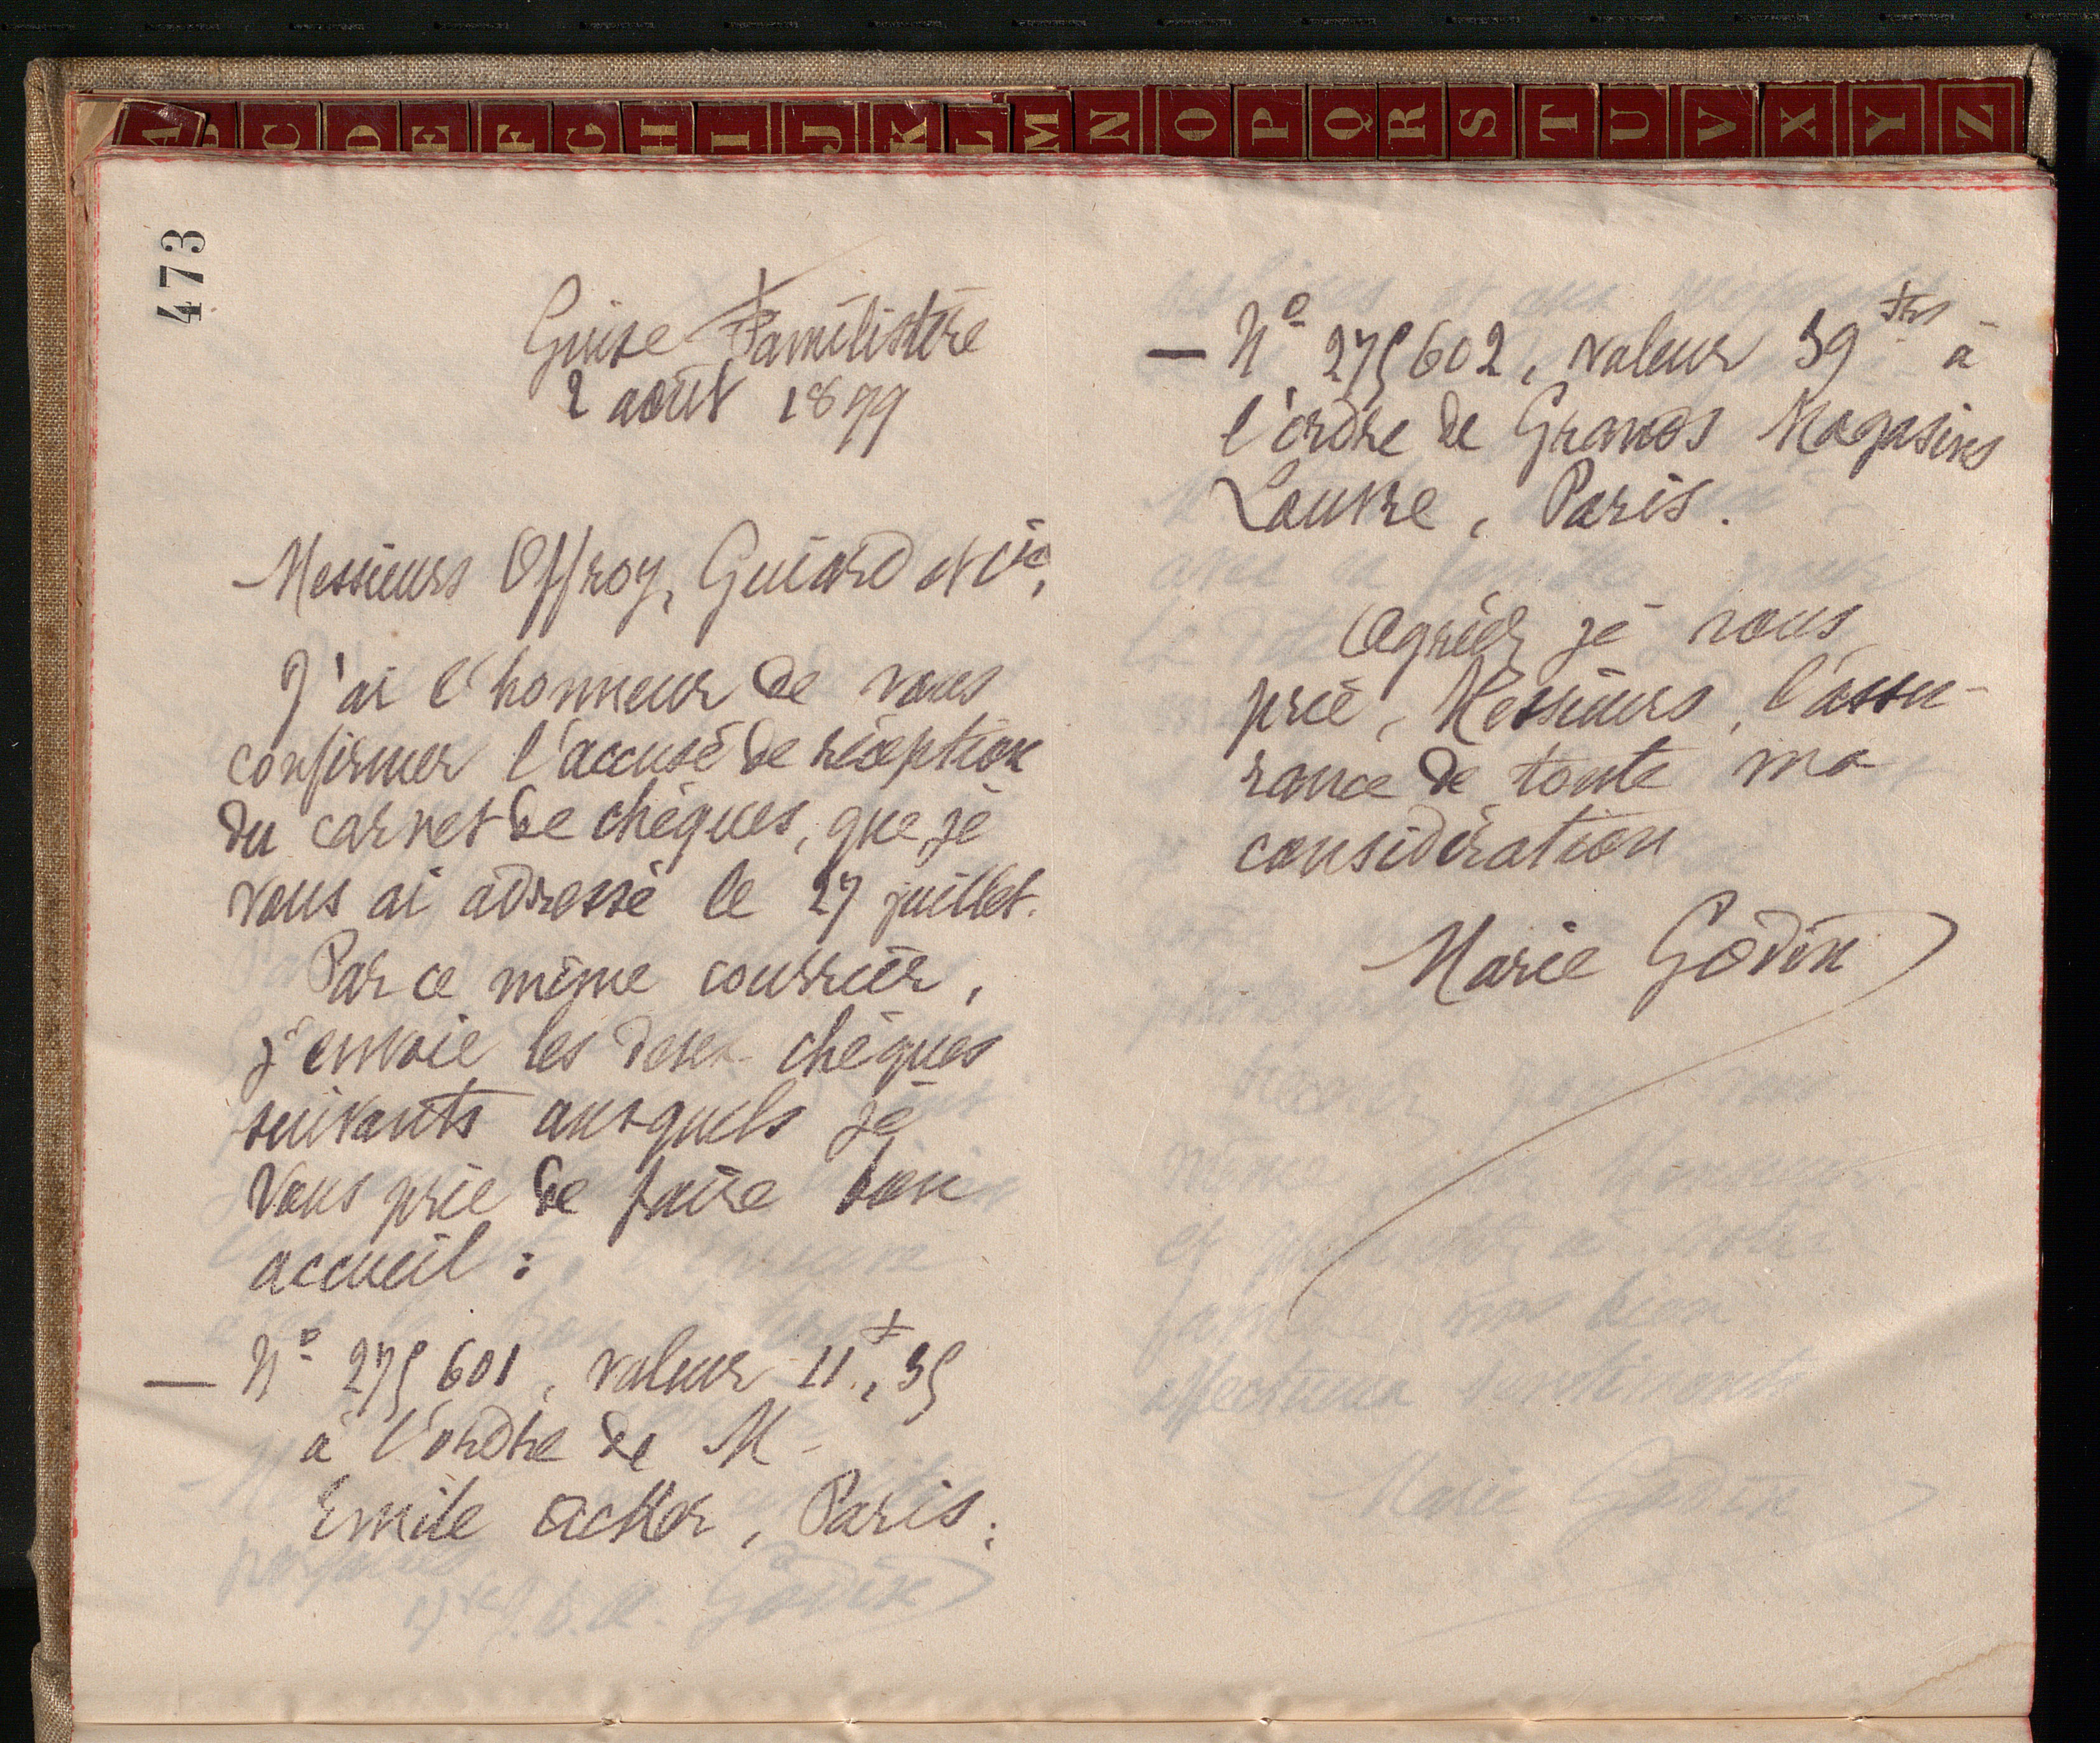 A B C D E F G H I J K L M N O P Q R S T U V X Y Z
473
Guise Familistère
2 août 1899
Messieurs Offroy, Guiard et Cie,
J'ai l'honneur de vous
confirmer l'accusé de réception
du carnet de chèques, que je
vous ai adressé le 27 juillet.
Par ce même courrier,
j'envoie les deux chèques
suivants auxquels je
vous prie de faire bon
accueil :
— No 275 601, valeur 11f, 35
à l'ordre de M
Emile Acker, Paris.
— No 275 602, valeur 39 frs à
l'ordre de Grands Magasins
Louvre, Paris.
Agréez je vous
prie, Messieurs, l'assu-
rance de toute ma
considération
Marie Godin